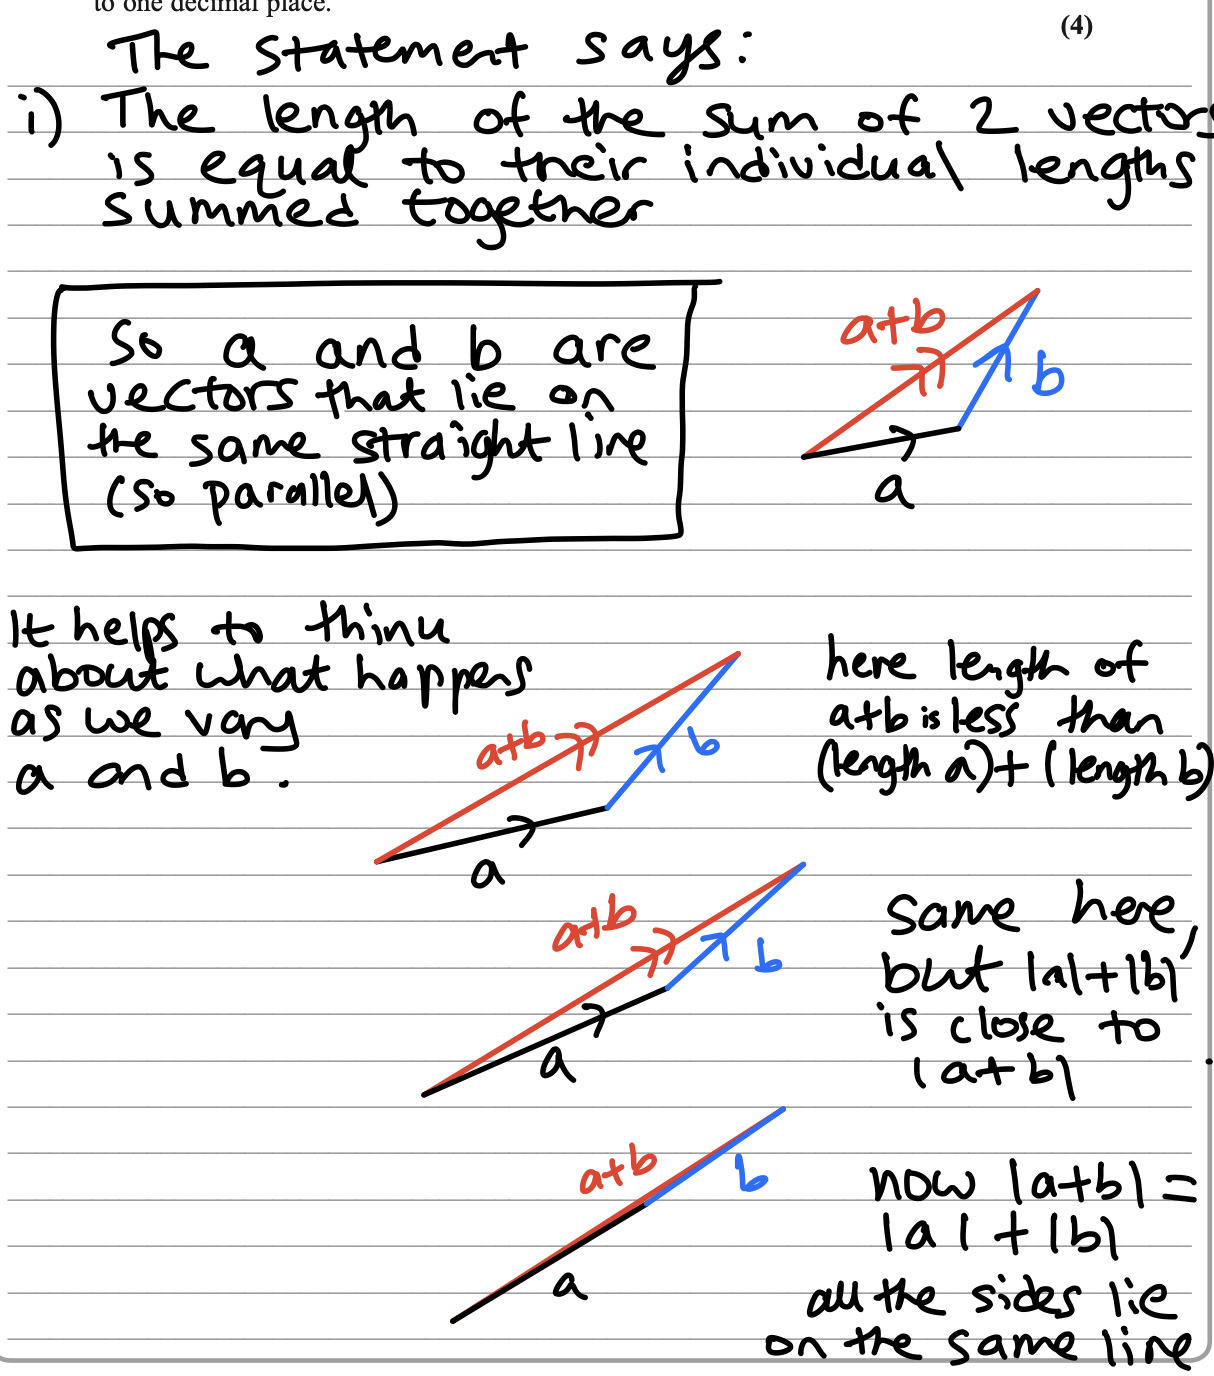 to one decimal place.
(4)
The statement says:
i) The length of the sum of 2 vectors
is equal to their individual lengths
summed together
So a and b are
vectors that lie on
the same straight line
(so parallel)
a+b
b
a
It helps to think
about what happens
as we vary
a and b.
a+b
b
a
here length of
a+b is less than
(length a)+(length b)
a+b
b
a
same here,
but |a|+|b|
is close to
|a+b|
a+b
b
a
now |a+b|=
|a|+|b|
all the sides lie
on the same line